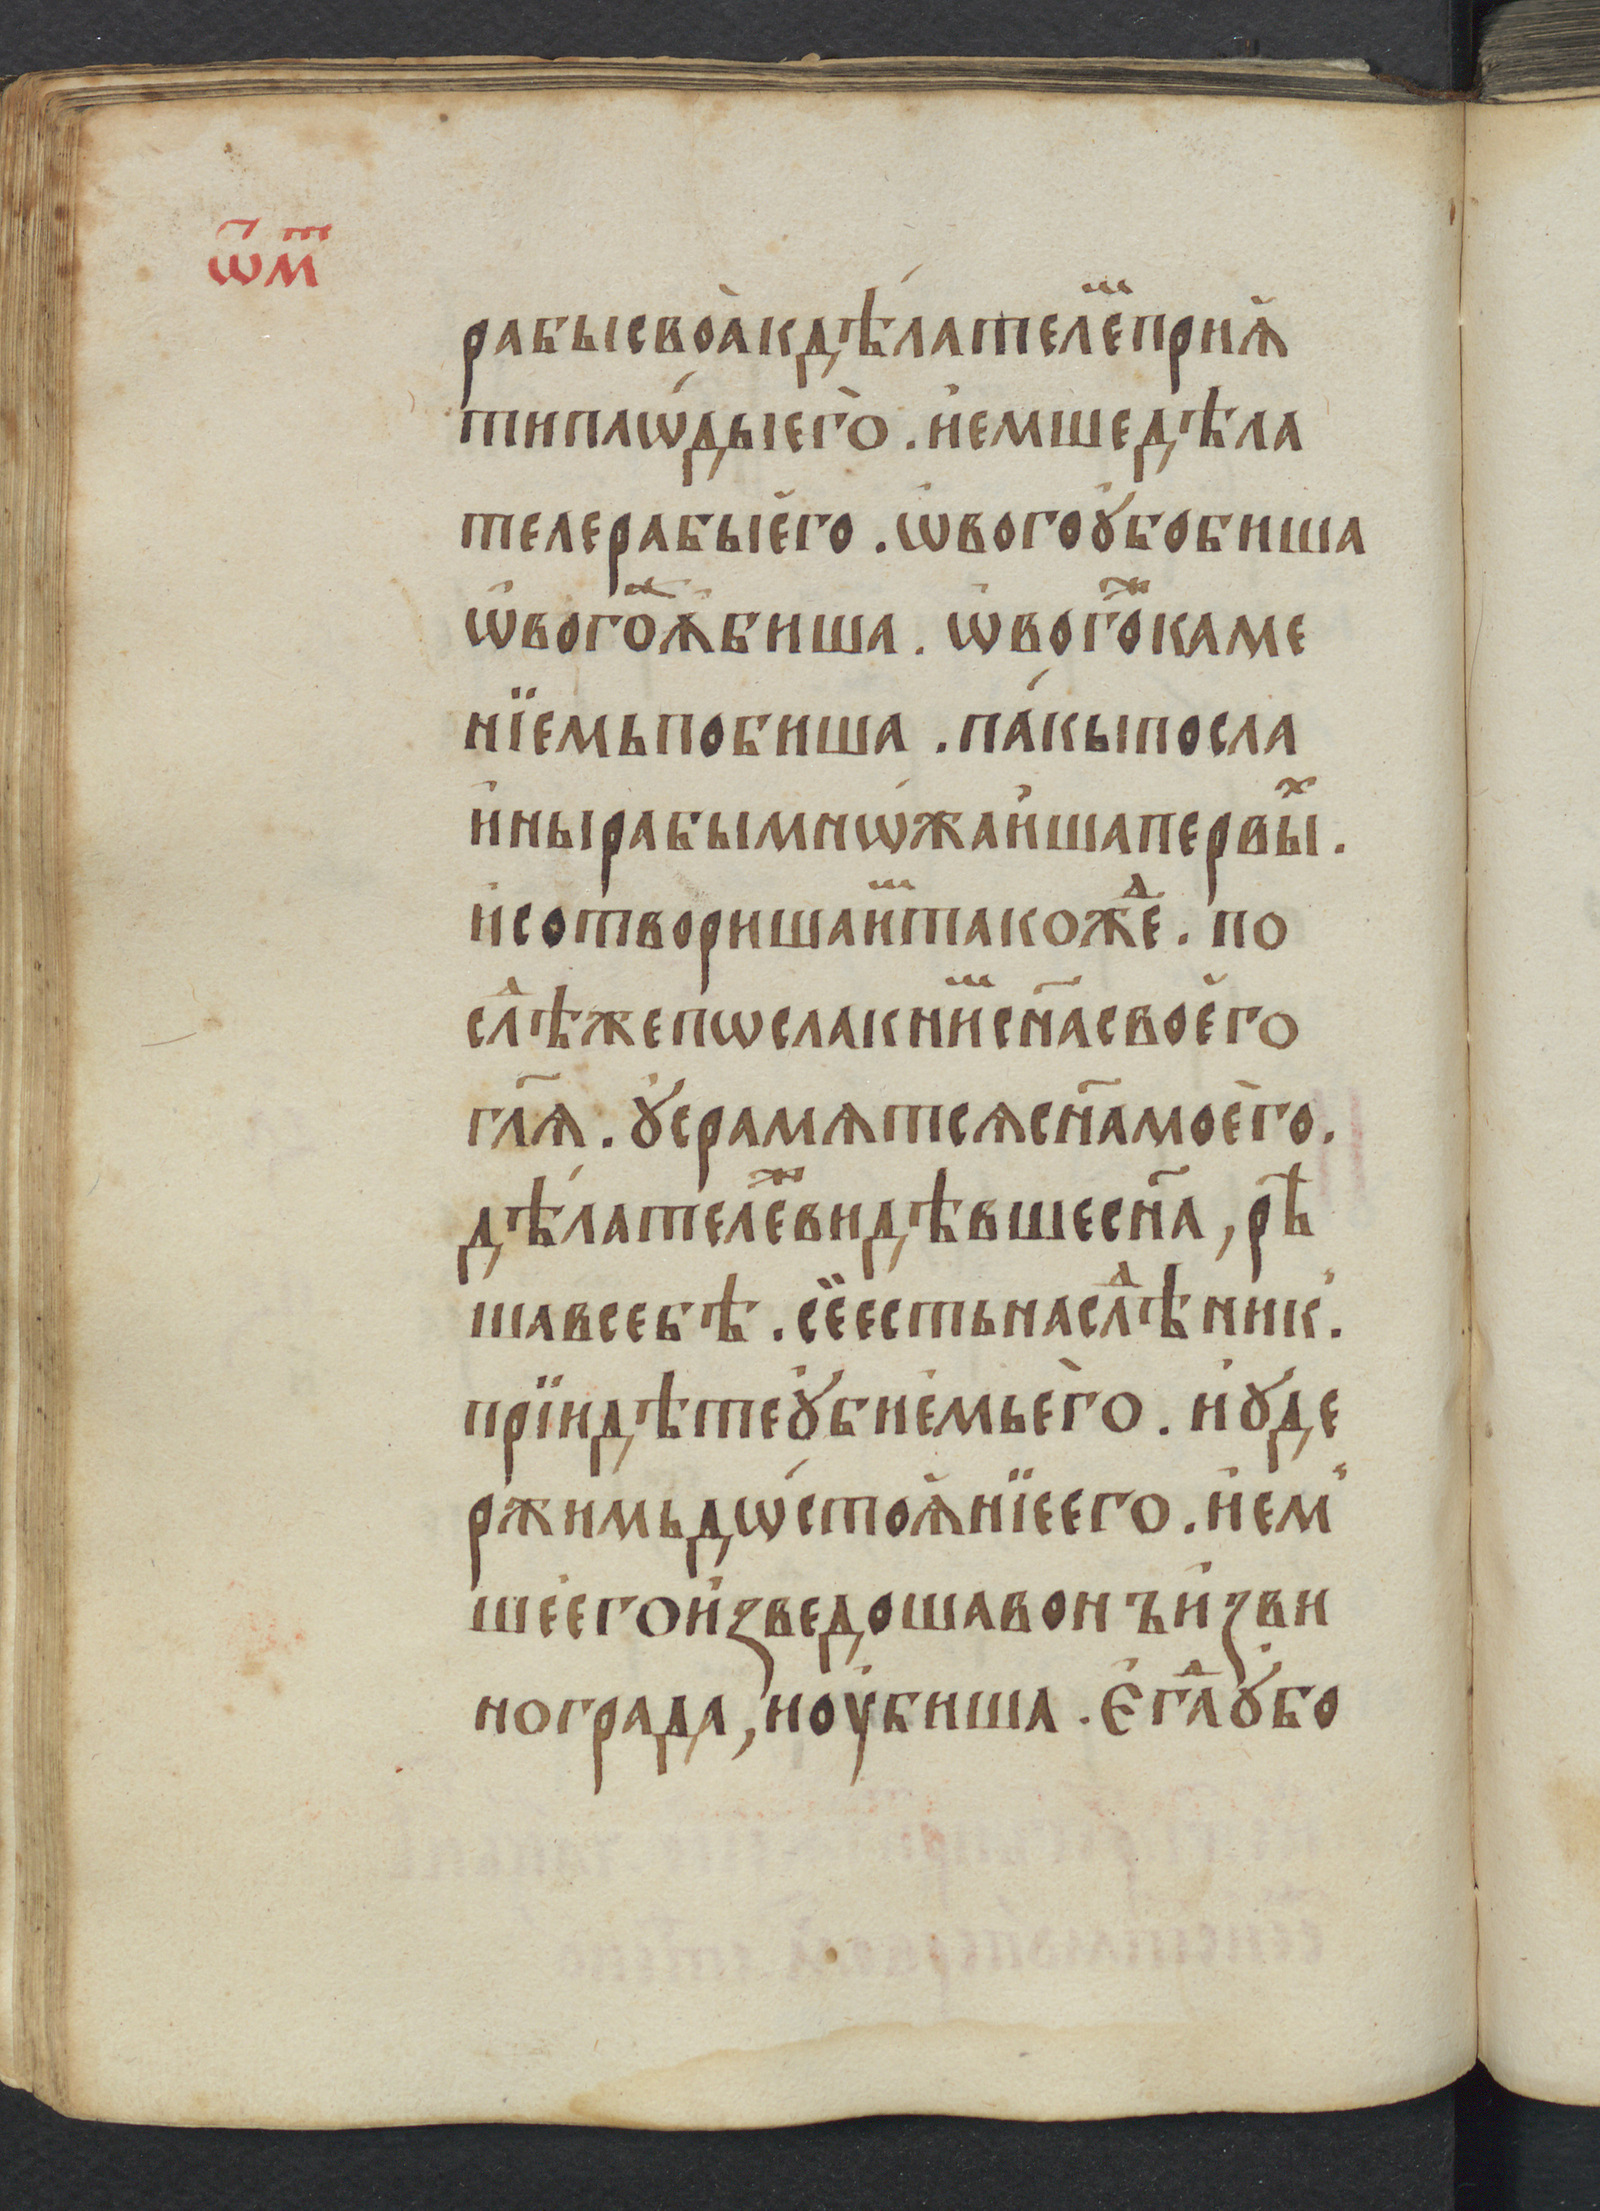 ѿ мⷮ
рабысвоѧ̀кдѣ́лателеⷨ҇прнѧ̑
типлѡ́дыегѡ̀. и҆емшедѣла
телерабыє҆го. ѡ҆вогоꙋ҆бобиша
ѡ҆вогоⷤѧ҆биша. ѡ҆вогоⷤкаме
нїемьпобиша. па́кыпосла
и҆нырабымнѡ́жаи҆шапервыⷯ.
и҆сотворишаиⷨтакожⷣе. по
слⷣѣжепѡслакниⷨсн҃асвоє҆го
гл҃ѧ. ꙋ҆срамѧтсѧсн҃амоє҆го.
дѣ́лателеⷤвидѣвшесн҃а, рѣ
шавсебѣ. сїеестьнаслⷣѣник.
прїидѣтеꙋ҆бие҆мьего̀. и҆ꙋде
ржимьдѡ́стоѧ҆нїеего. и҆ем
шеегои҆зведошавонъи҆зви
нограда, иоу҆биша. Є҆гⷣаꙋ҆бо